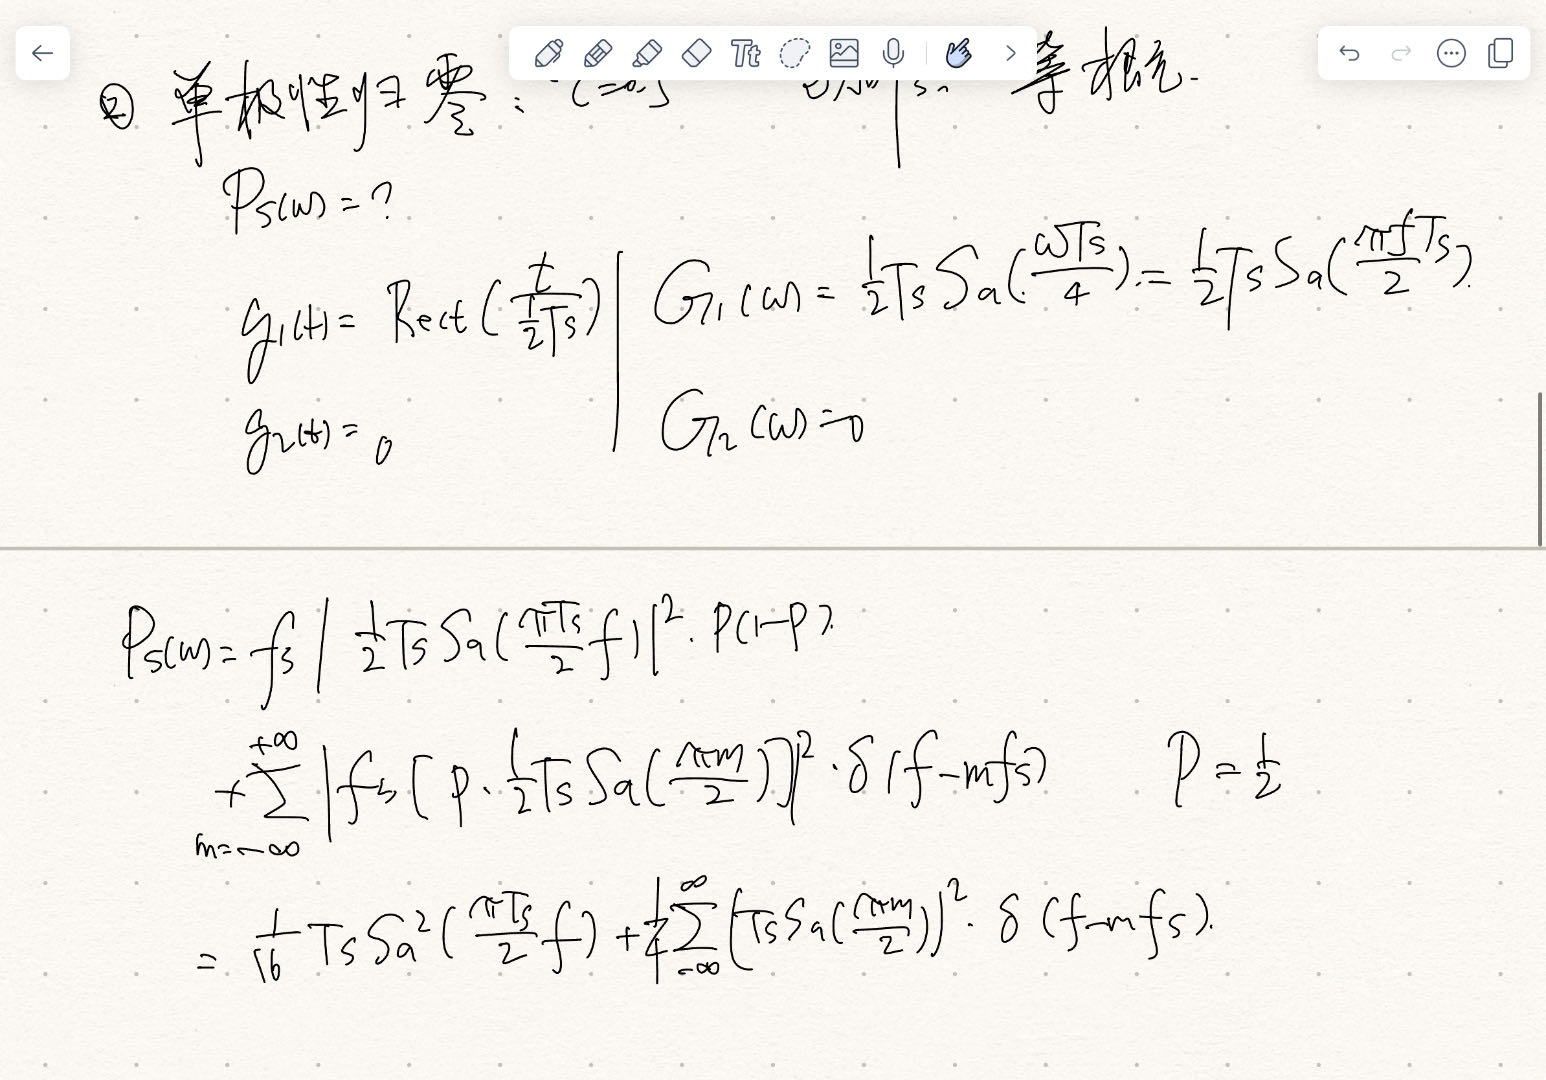 ② 单极性归零:
等概.
Ps(w) = ?
g₁(t) = Rect(t / (½Ts)) | G₁(w) = ½Ts Sa(ωTs/4) = ½Ts Sa(πfTs/2)
g₂(t) = 0 | G₂(w) = 0
Ps(w) = fs | ½Ts Sa(πTs/2 f)|² · P(1-P).
+ Σ_{m=-∞}^{+∞} |fs[P · ½Ts Sa(πm/2)]|² · δ(f-mfs) P = ½
= 1/16 Ts Sa²(πTs/2 f) + ¼ Σ_{-∞}^{∞} (Ts Sa(πm/2))² · δ(f-mfs).